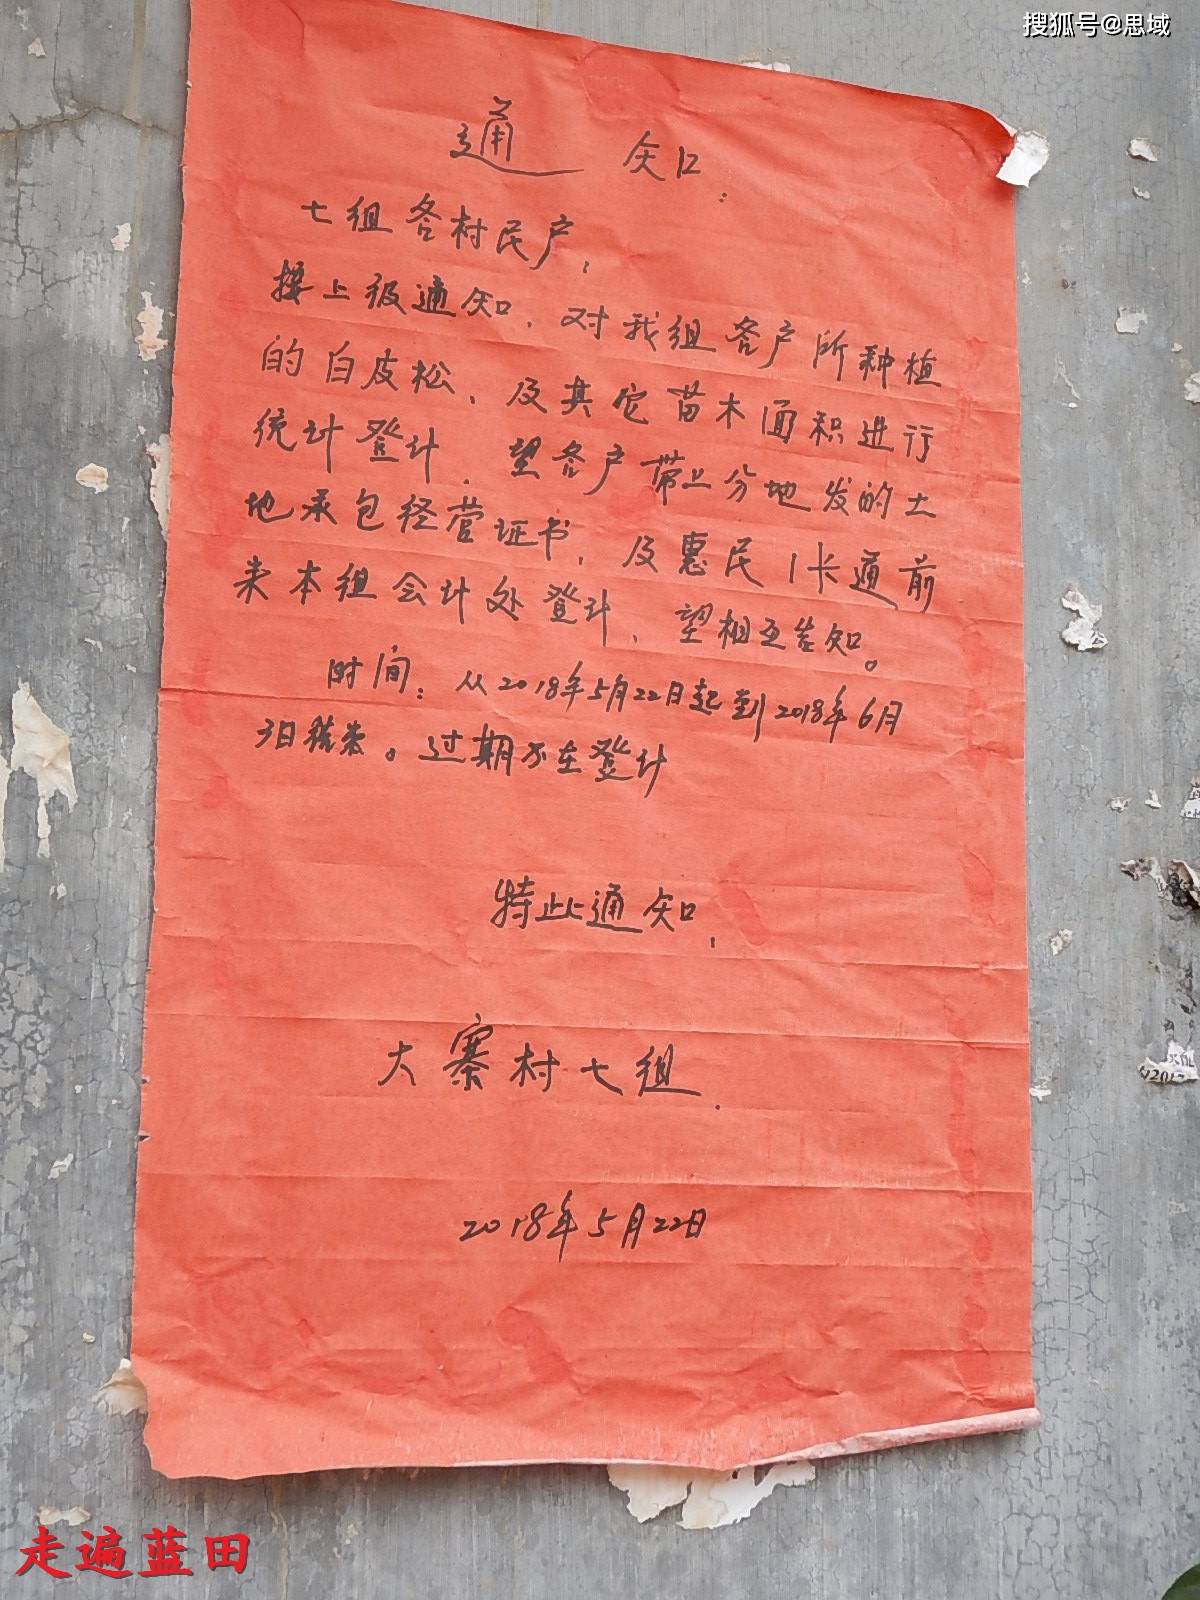 搜狐号@思域
通 知:
七组各村民户,
接上级通知,对我组各户所种植
的白皮松、及其它苗木面积进行
统计登计,望各户带上分地发的土
地承包经营证书,及惠民1卡通前
来本组会计处登计,望相互告知。
时间:从2018年5月22日起到2018年6月
3日结束。过期不在登计
特此通知,
大寨村七组.
2018年5月22日
走遍蓝田